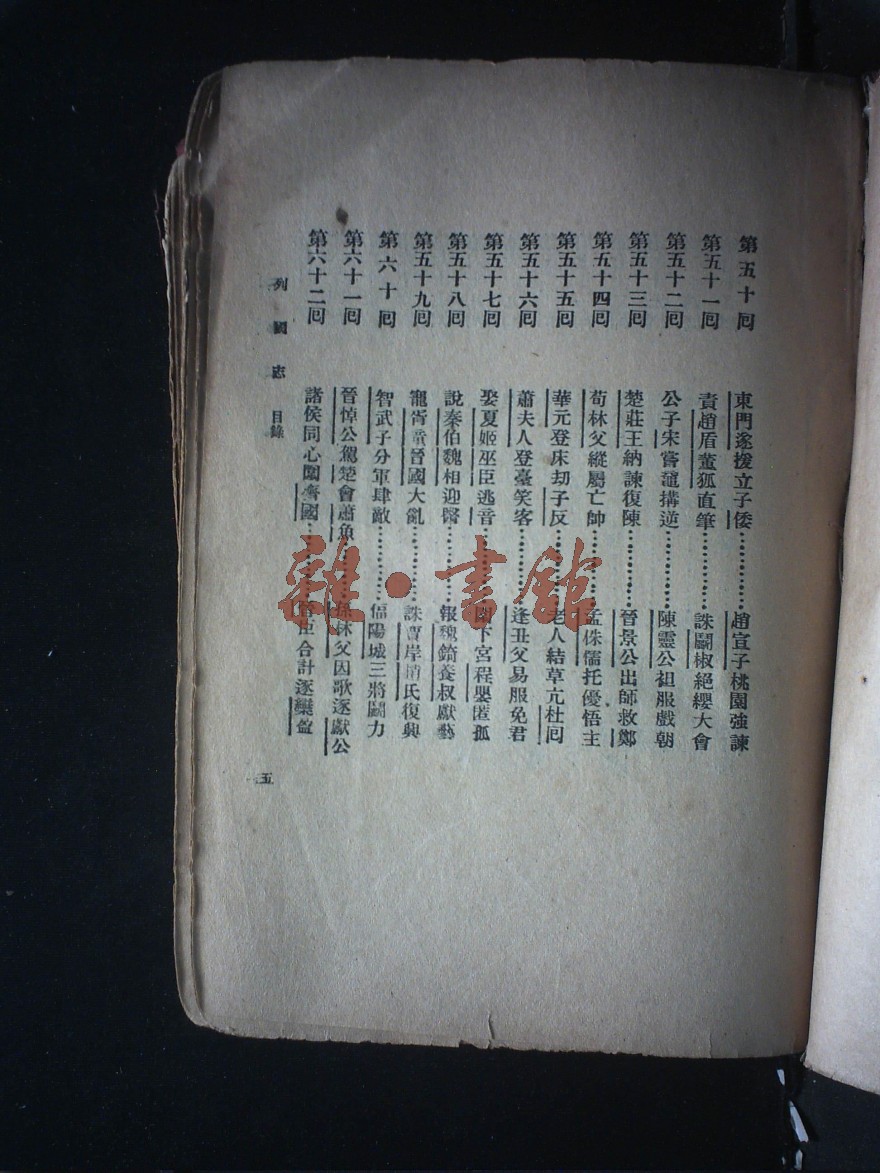 第五十回 東門遂援立子倭…………趙宣子桃園強諫
第五十一回 責趙盾董狐直筆…………誅鬭椒絕纓大會
第五十二回 公子宋嘗黿搆逆…………陳靈公袒服戲朝
第五十三回 楚莊王納諫復陳…………晉景公出師救鄭
第五十四回 荀林父縱屬亡帥…………孟侏儒托優悟主
第五十五回 華元登床劫子反…………老人結草亢杜回
第五十六回 蕭夫人登臺笑客…………逢丑父易服免君
第五十七回 娶夏姬巫臣逃晉…………圍下宮程嬰匿孤
第五十八回 說秦伯魏相迎醫…………報魏錡養叔獻藝
第五十九回 寵胥童晉國大亂…………誅岸賈趙氏復興
第六十回 智武子分軍肆敵…………偪陽城三將鬭力
第六十一回 晉悼公駕楚會蕭魚…………孫林父因歌逐獻公
第六十二回 諸侯同心圍齊國…………晉臣合計逐欒盈
列國志 目錄
五
雜·書館